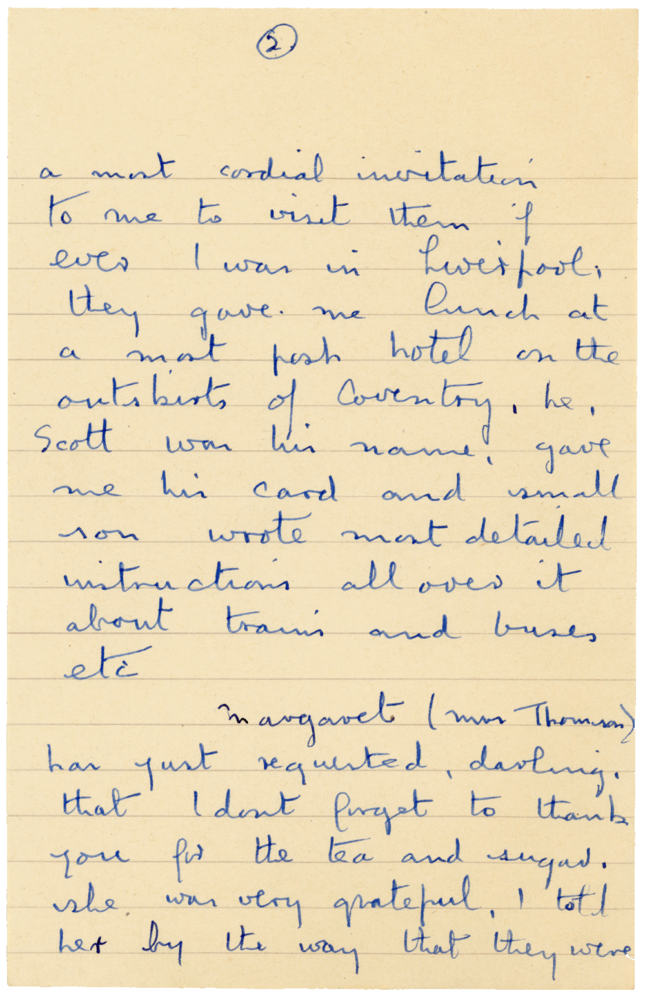 2
a most cordial invitation
to me to visit them if
ever I was in Liverpool,
they gave me lunch at
a most posh hotel on the
outskirts of Coventry, he,
Scott was his name, gave
me his card and small
son wrote most detailed
instructions all over it
about trains and buses
etc
Margaret (Mrs Thomson)
has just requested, darling,
that I dont forget to thank
you for the tea and sugar.
she was very grateful, I told
her by the way that they were